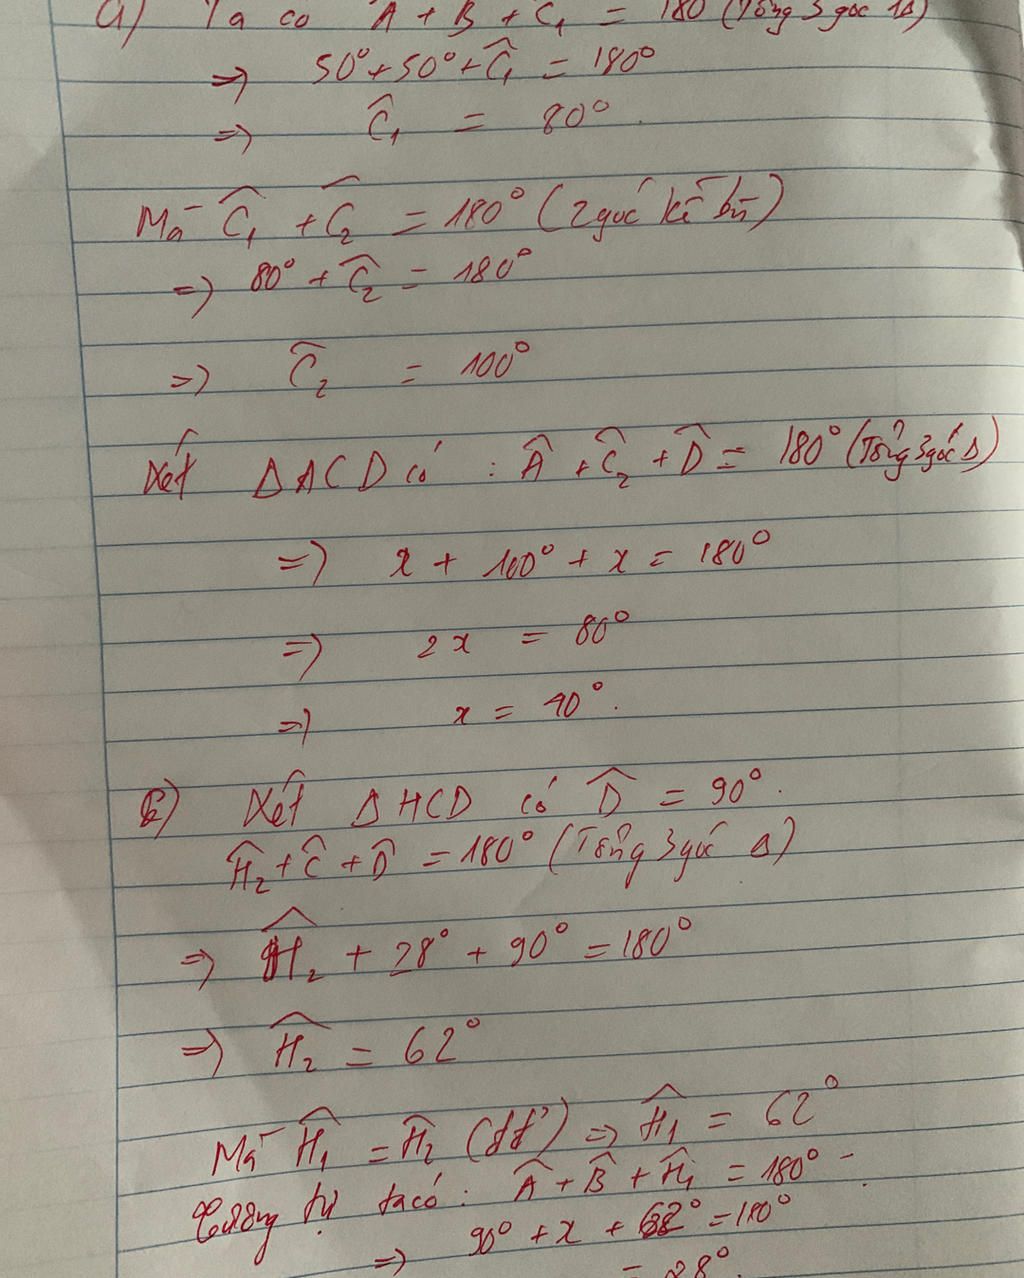 a) Ta có A + B + Ĉ₁ = 180 (Tổng 3 góc 1Δ)
=> 50° + 50° + Ĉ₁ = 180°
=> Ĉ₁ = 80°.
Mà Ĉ₁ + Ĉ₂ = 180° (2 góc kề bù)
=> 80° + Ĉ₂ = 180°
=> Ĉ₂ = 100°
Xét ΔACD có : Â + Ĉ₂ + D̂ = 180° (Tổng 3 góc Δ)
=> x + 100° + x = 180°
=> 2x = 80°
=> x = 40°.
Xét ΔHCD có D̂ = 90°.
Ĥ₂ + Ĉ + D̂ = 180° (Tổng 3 góc Δ)
=> Ĥ₂ + 28° + 90° = 180°
=> Ĥ₂ = 62°
Mà Ĥ₁ = Ĥ₂ (đđ) => Ĥ₁ = 62°
Tương tự ta có : Â + B̂ + Ĥ₁ = 180°
=> 90° + x + 62° = 180°
= 28°.